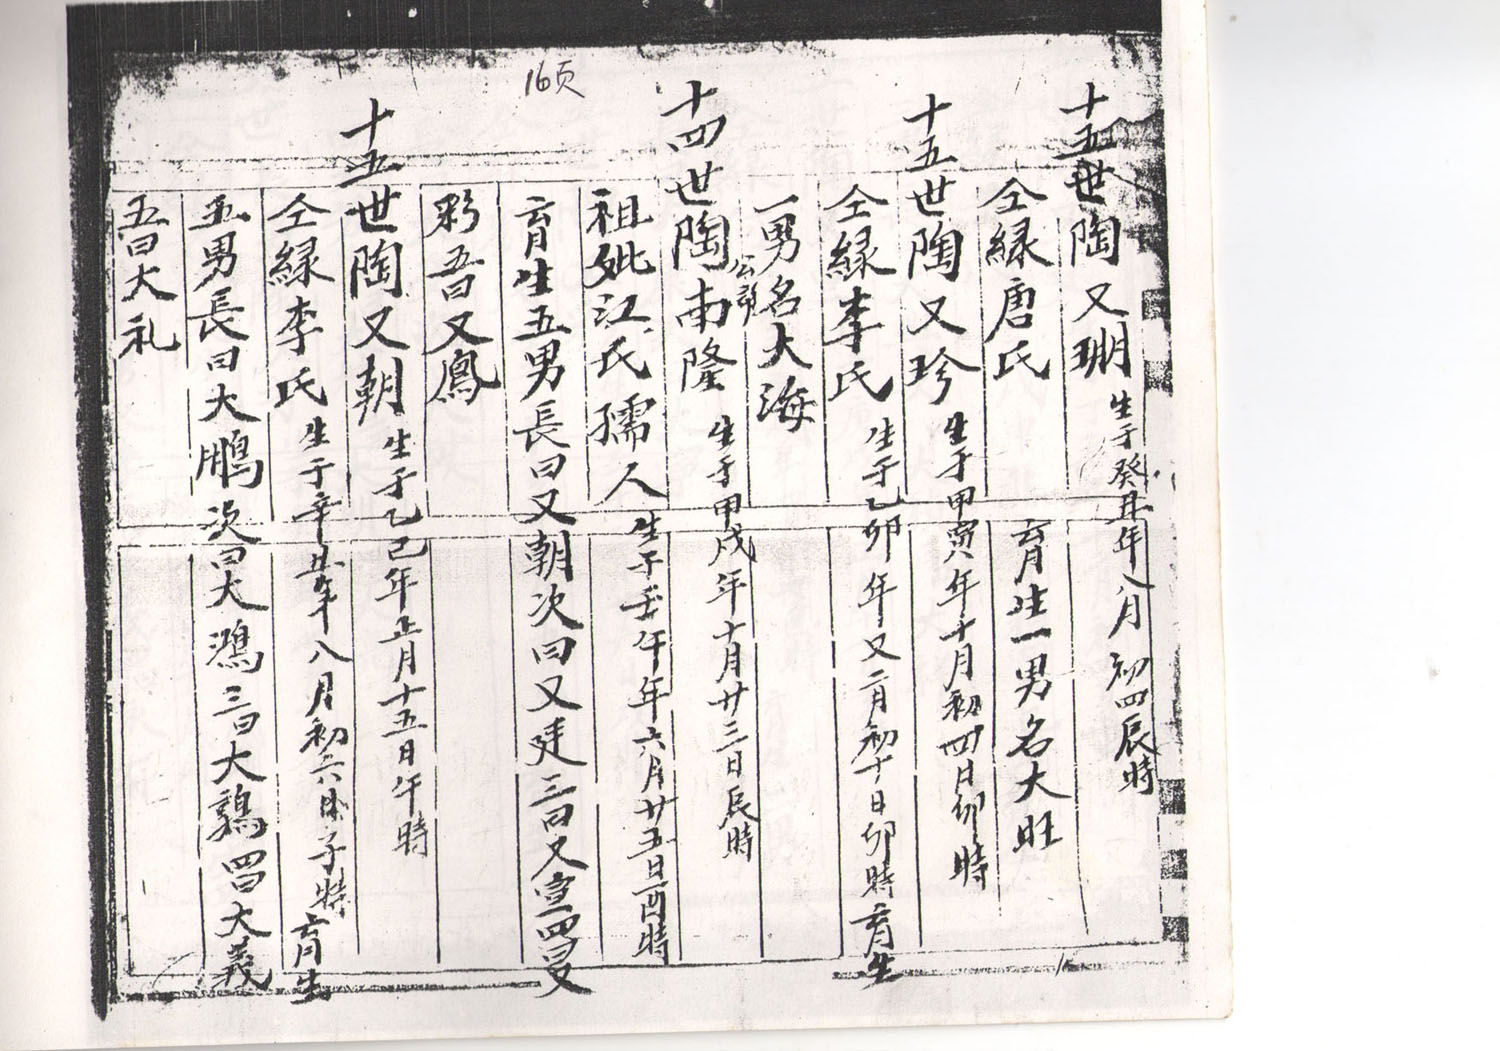 16页
十五世陶又珊 生于癸丑年八月初四辰時
仝緣唐氏 育生一男名大旺
十五世陶又珍 生于甲寅年十月初四日卯時
仝緣李氏 生于乙卯年又二月初十日卯時育生
一男名大海
十四世陶公諱南隆 生于甲戌年十月廿三日辰時
祖妣江氏孺人 生于壬午年六月廿五日酉時
育生五男長曰又朝次曰又廷三曰又宣四曰又
彩五曰又鳳
十五世陶又朝 生于乙巳年正月十五日午時
仝緣李氏 生于辛丑年八月初六日子時育生
五男長曰大鵬次曰大鴻三曰大鶏四曰大義
五曰大礼